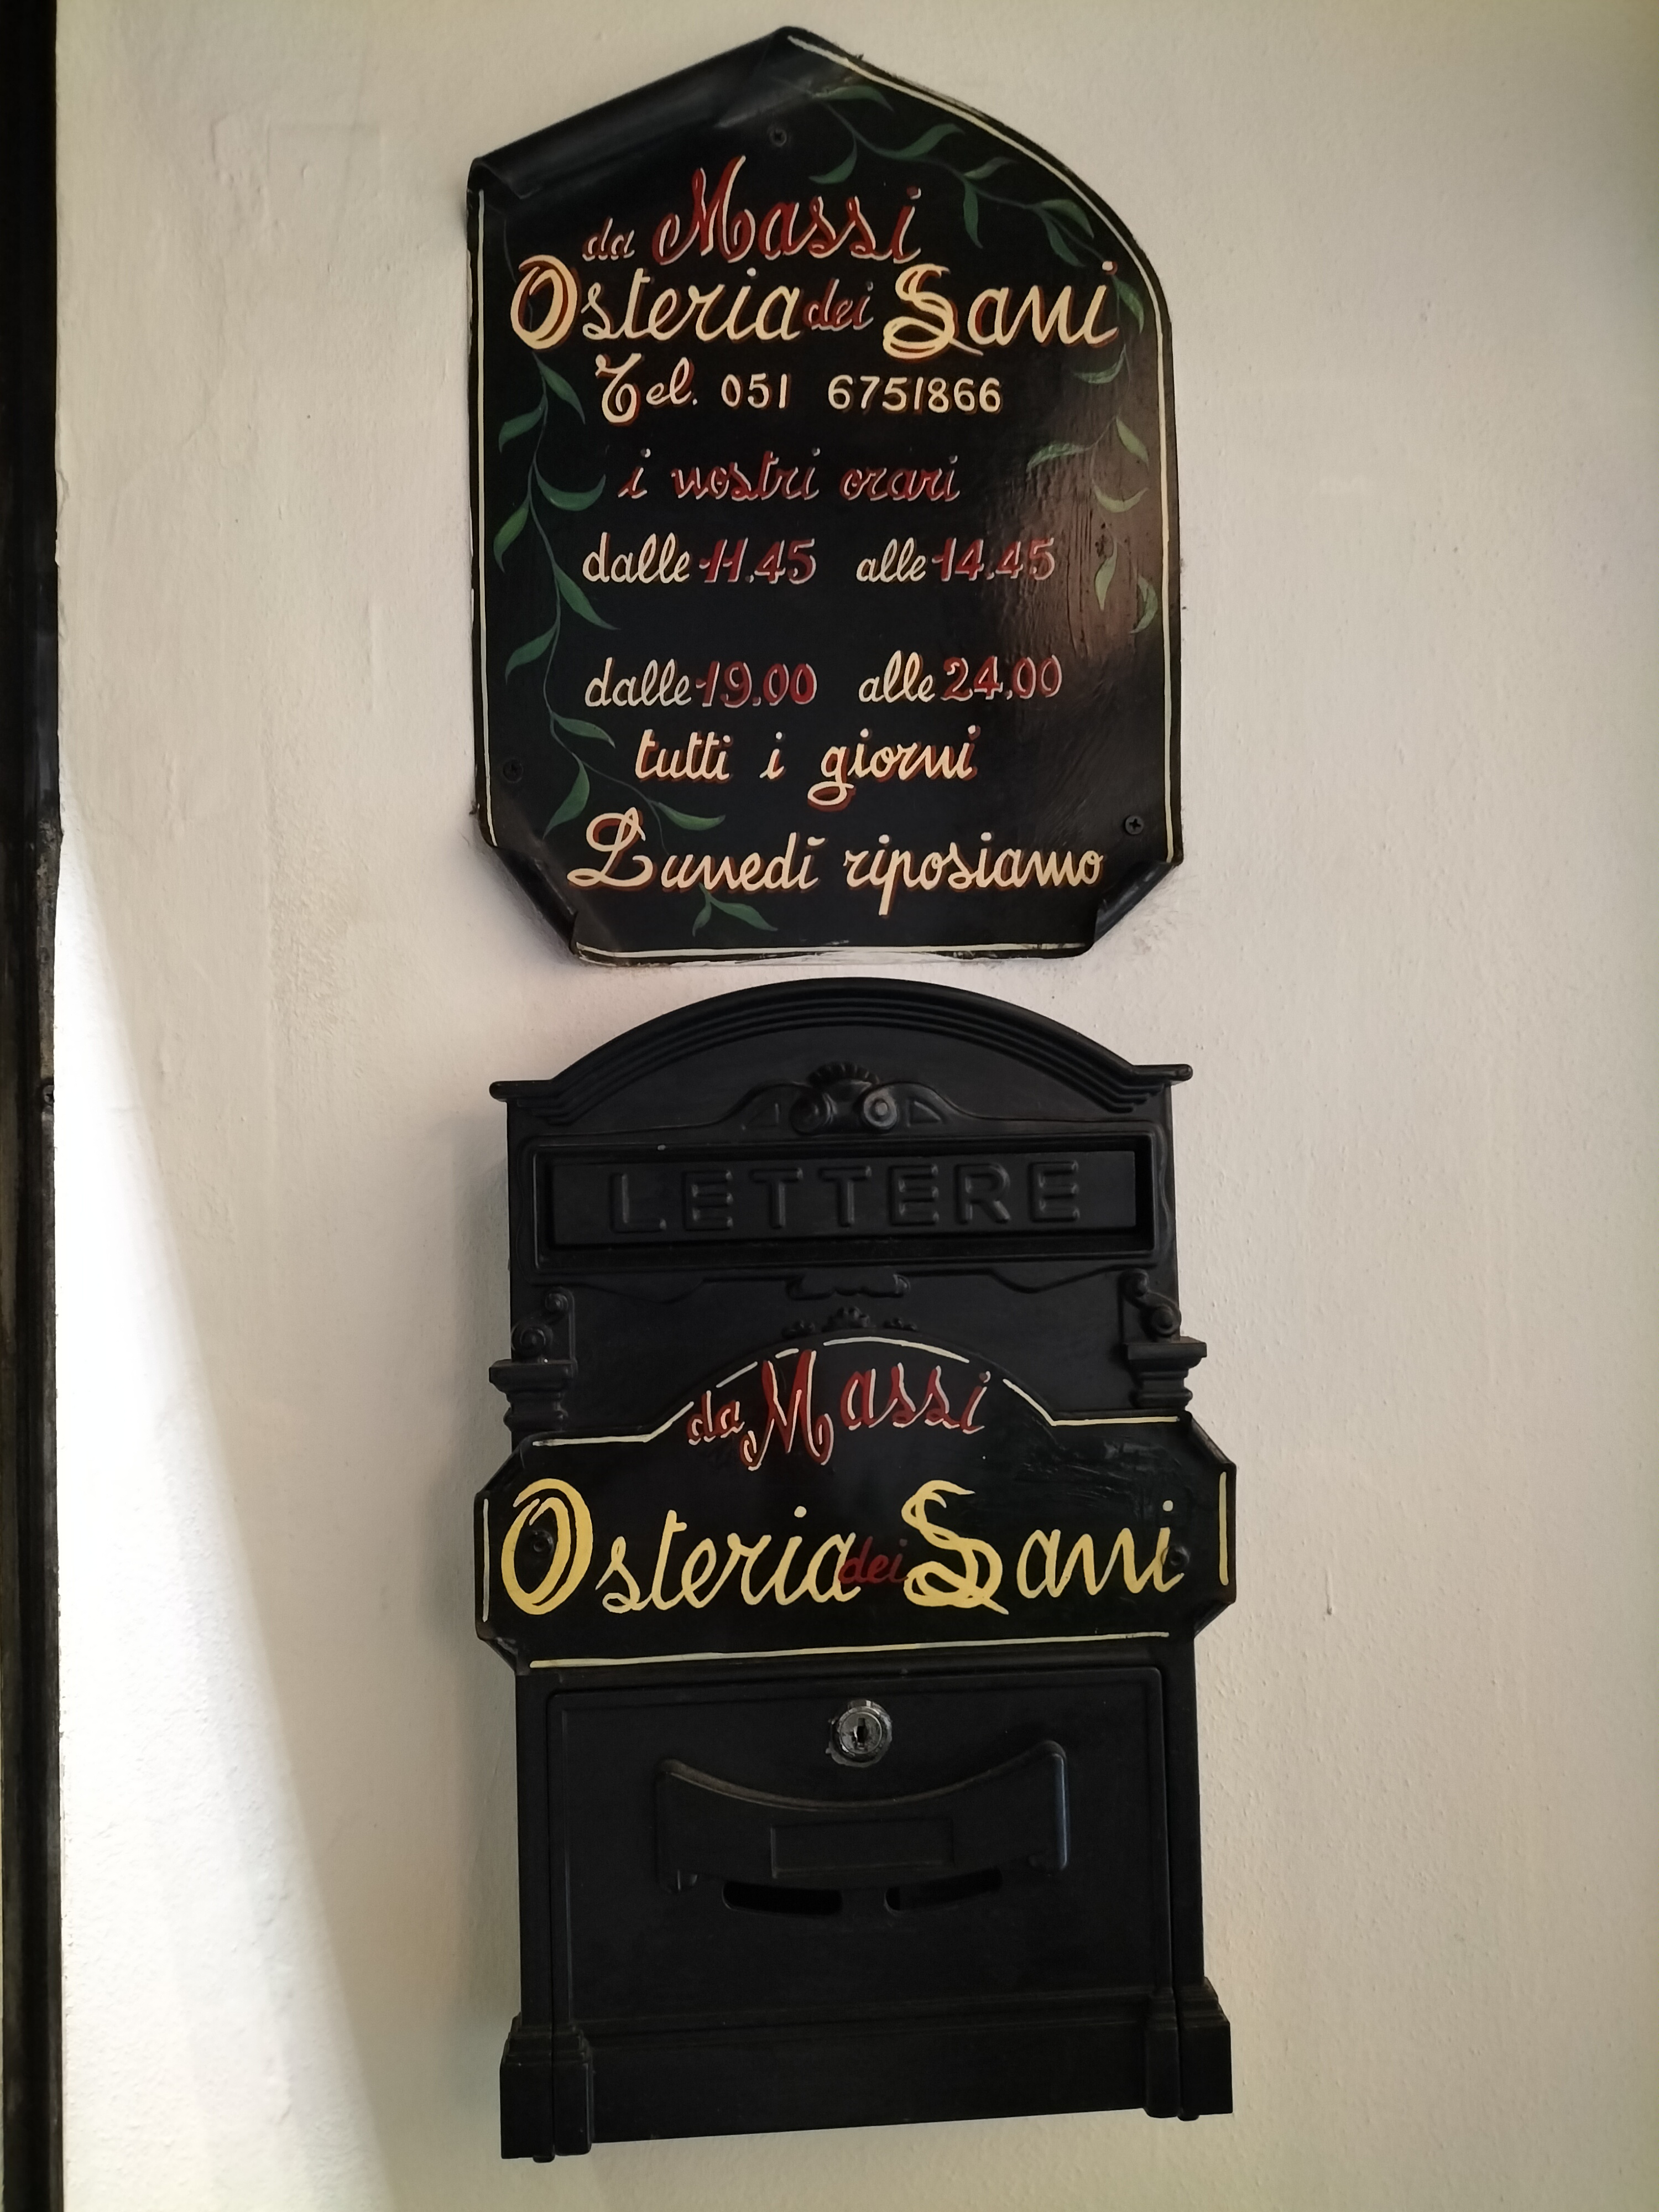 da Massi
Osteria dei Sani
Tel. 051 6751866
i nostri orari
dalle 11.45 alle 14.45
dalle 19.00 alle 24.00
tutti i giorni
Lunedì riposiamo
LETTERE
da Massi
Osteria dei Sani